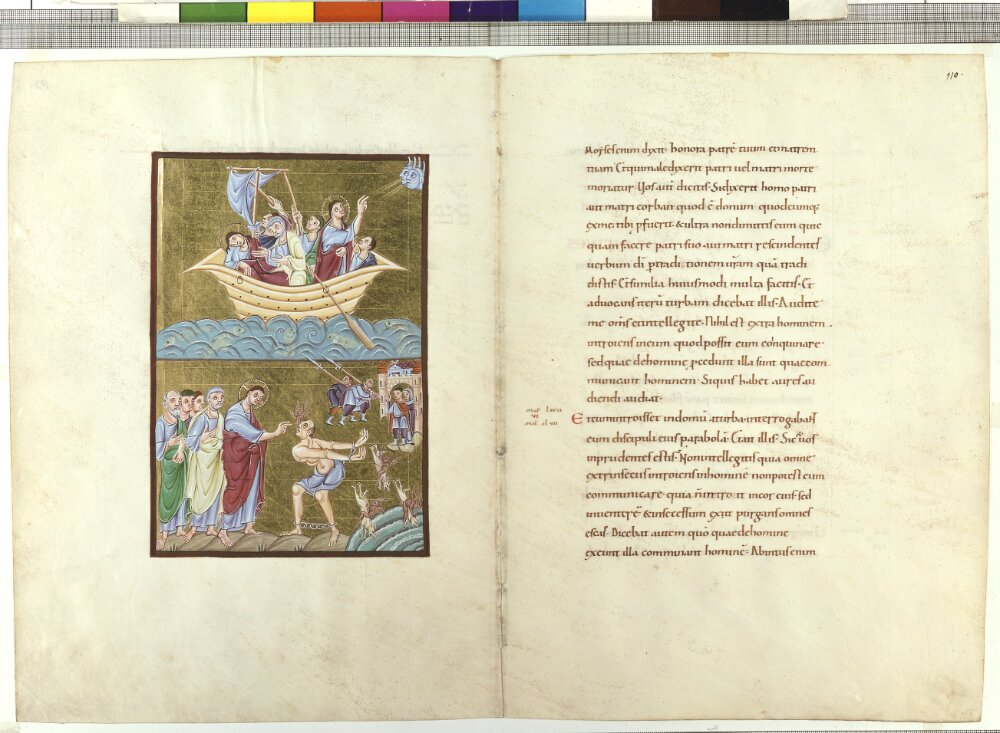 110.
Moyses enim dyxit honora patrē tuum et matrem
tuam Et qui maledyxerit patri vel matri morte
moriatur. Uos autē dicitis. Si dyxerit homo patri
aut matri corban quod ē donum quodcumq;
ex me tibi pfuerit & ultra non dimittitis eum quic
quam facere patri suo aut matri rescindentes
uerbum dī p traditionem urām quā tradi
distis. Et similia huiusmodi multa facitis. Et
aduocans iterū turbam dicebat illis. Audite
me oms et intellegite. Nihil est extra hominem
introiens in eum quod possit eum coinquinare
sed quae de homine pcedunt illa sunt quae com
municant hominem. Siquis habet aures au
diendi audiat.
Et cum introisset in domū a turba interrogabant
eum discipuli eius parabolā. Et ait illis. Sic & uos
inprudentes estis. Non intellegitis quia omne
extrinsecus introiens in hominē non potest eum
communicare quia n̄ intro it in cor eius sed
in uentrē & in secessum exit purgans omnes
escas. Dicebat autem quō quae de homine
exeunt illa communicant hominē. Ab intus enim